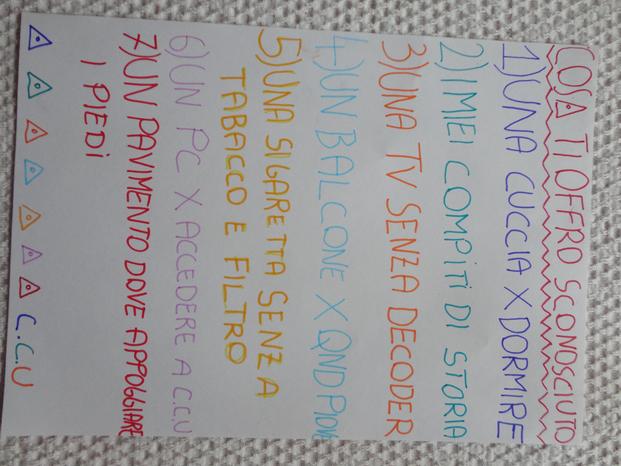 COSA TI OFFRO SCONOSCIUTO
1) UNA CUCCIA X DORMIRE
2) I MIEI COMPITI DI STORIA
3) UNA TV SENZA DECODER
4) UN BALCONE X QND PIOVE
5) UNA SIGARETTA SENZA
TABACCO E FILTRO
6) UN PC X ACCEDERE A C.C.U
7) UN PAVIMENTO DOVE APPOGGIARE
I PIEDI
C.C.U